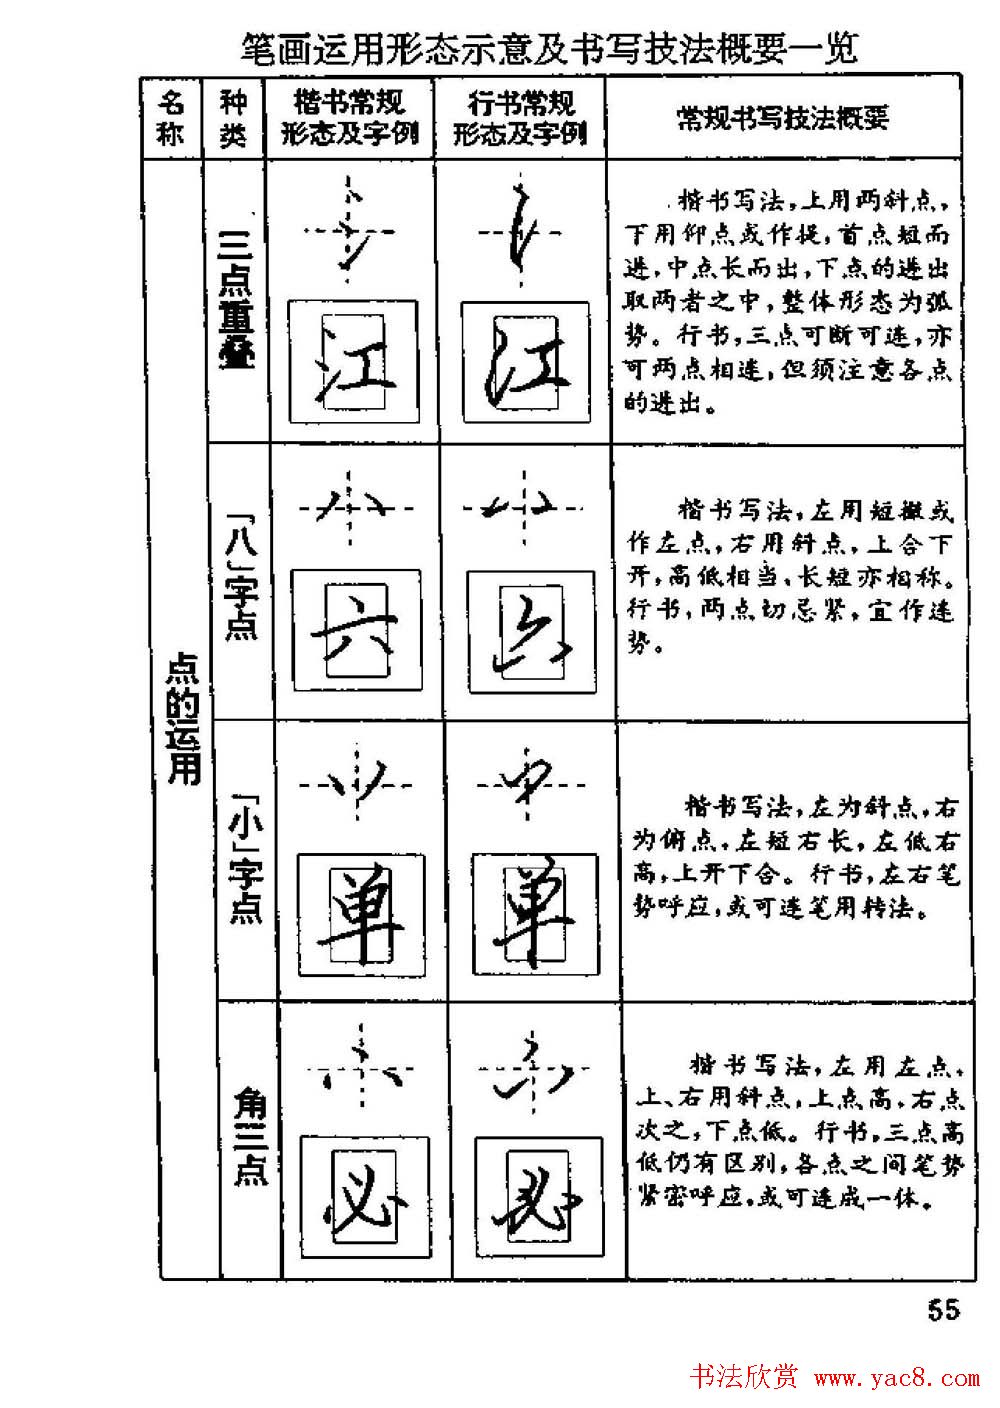 笔画运用形态示意及书写技法概要一览
名称
种类
楷书常规
形态及字例
行书常规
形态及字例
常规书写技法概要
点的运用
三点重叠
江
江
楷书写法，上用两斜点，
下用仰点或作提，首点短而
进，中点长而出，下点的进出
取两者之中，整体形态为弧
势。行书，三点可断可连，亦
可两点相连，但须注意各点
的进出。
「八」字点
六
六
楷书写法，左用短撇或
作左点，右用斜点，上合下
开，高低相当，长短亦相称。
行书，两点切忌紧，宜作连
势。
「小」字点
单
单
楷书写法，左为斜点，右
为俯点，左短右长，左低右
高，上开下合。行书，左右笔
势呼应，或可连笔用转法。
角三点
必
必
楷书写法，左用左点，
上、右用斜点，上点高，右点
次之，下点低。行书，三点高
低仍有区别，各点之间笔势
紧密呼应，或可连成一体。
55
书法欣赏 www.yac8.com